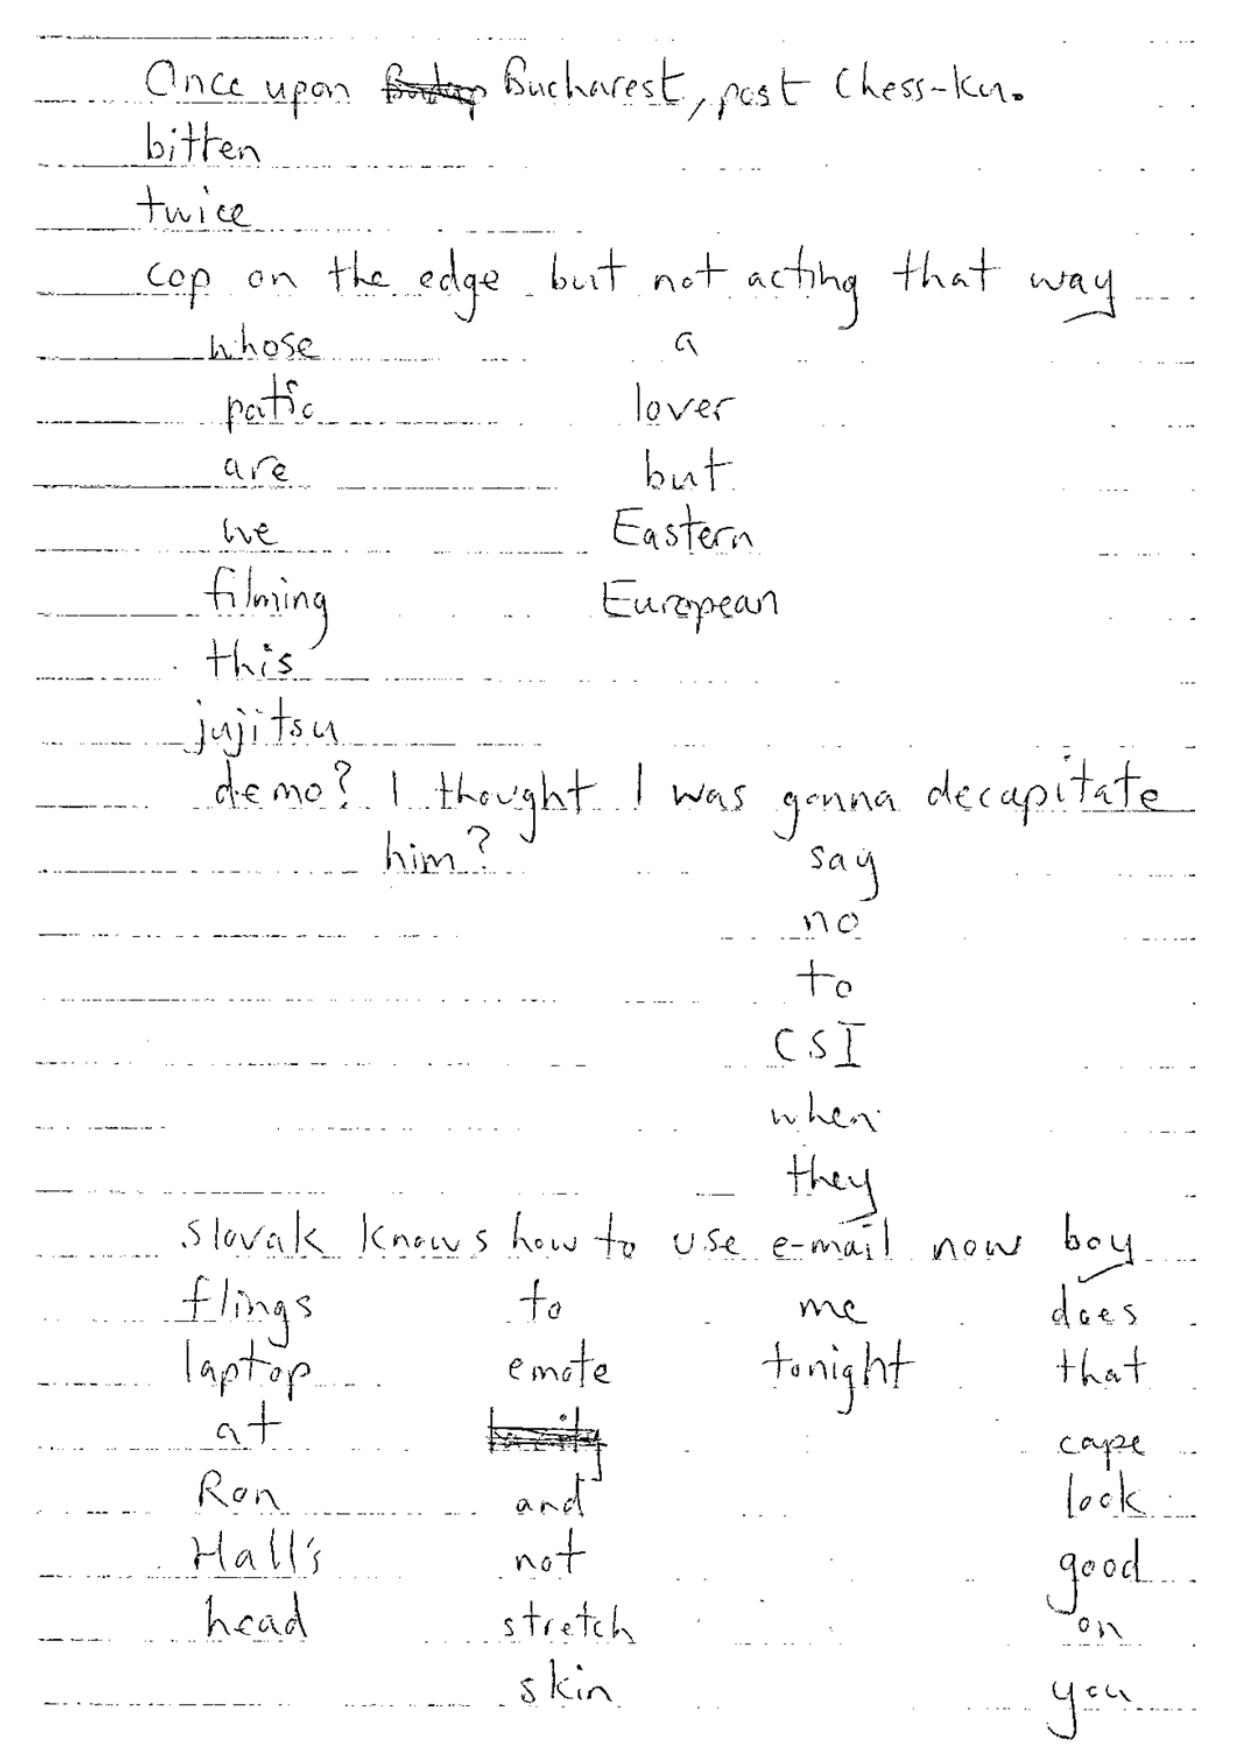 Once upon Bucharest, post Chess-Ku.
bitten
twice
cop on the edge but not acting that way
whose a
patio lover
are but
we Eastern
filming European
this
jujitsu
demo? I thought I was gonna decapitate
him? say
no
to
CSI
when
they
slovak knows how to use e-mail now boy
flings to me does
laptop emote tonight that
at cape
Ron and look
Hall's not good
head stretch on
skin you